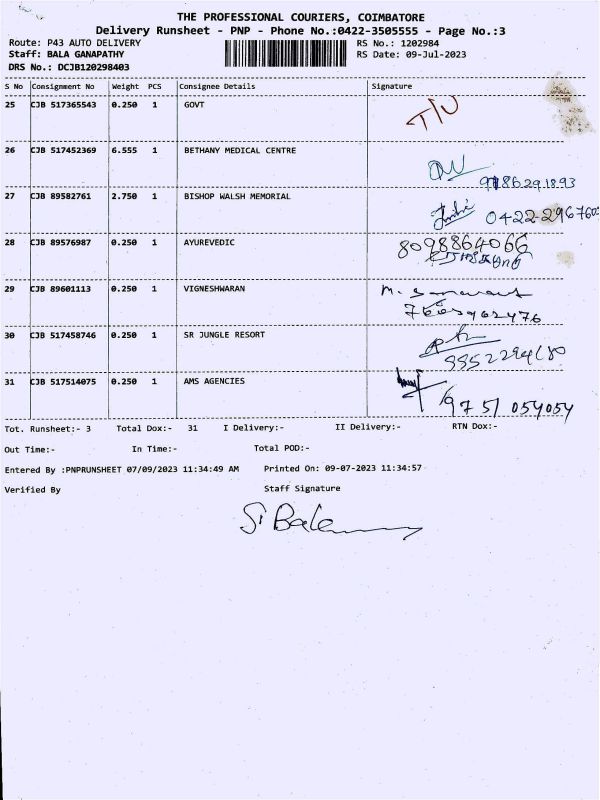 THE PROFESSIONAL COURIERS, COIMBATORE
Delivery Runsheet - PNP - Phone No.:0422-3505555 - Page No.:3
Route: P43 AUTO DELIVERY RS No.: 1202984
Staff: BALA GANAPATHY RS Date: 09-Jul-2023
DRS No.: DCJB120298403
S No Consignment No Weight PCS Consignee Details Signature
25 CJB 517365543 0.250 1 GOVT
26 CJB 517452369 6.555 1 BETHANY MEDICAL CENTRE
27 CJB 89582761 2.750 1 BISHOP WALSH MEMORIAL
28 CJB 89576987 0.250 1 AYUREVEDIC 8098864066
29 CJB 89601113 0.250 1 VIGNESHWARAN
30 CJB 517458746 0.250 1 SR JUNGLE RESORT
31 CJB 517514075 0.250 1 AMS AGENCIES 9751 054054
Tot. Runsheet:- 3 Total Dox:- 31 I Delivery:- II Delivery:- RTN Dox:-
Out Time:- In Time:- Total POD:-
Entered By :PNPRUNSHEET 07/09/2023 11:34:49 AM Printed On: 09-07-2023 11:34:57
Verified By Staff Signature